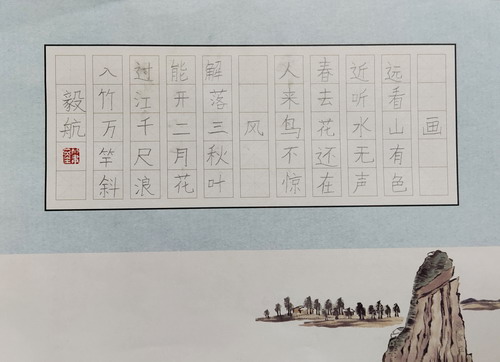 画
远看山有色
近听水无声
春去花还在
人来鸟不惊
风
解落三秋叶
能开二月花
过江千尺浪
入竹万竿斜
毅航